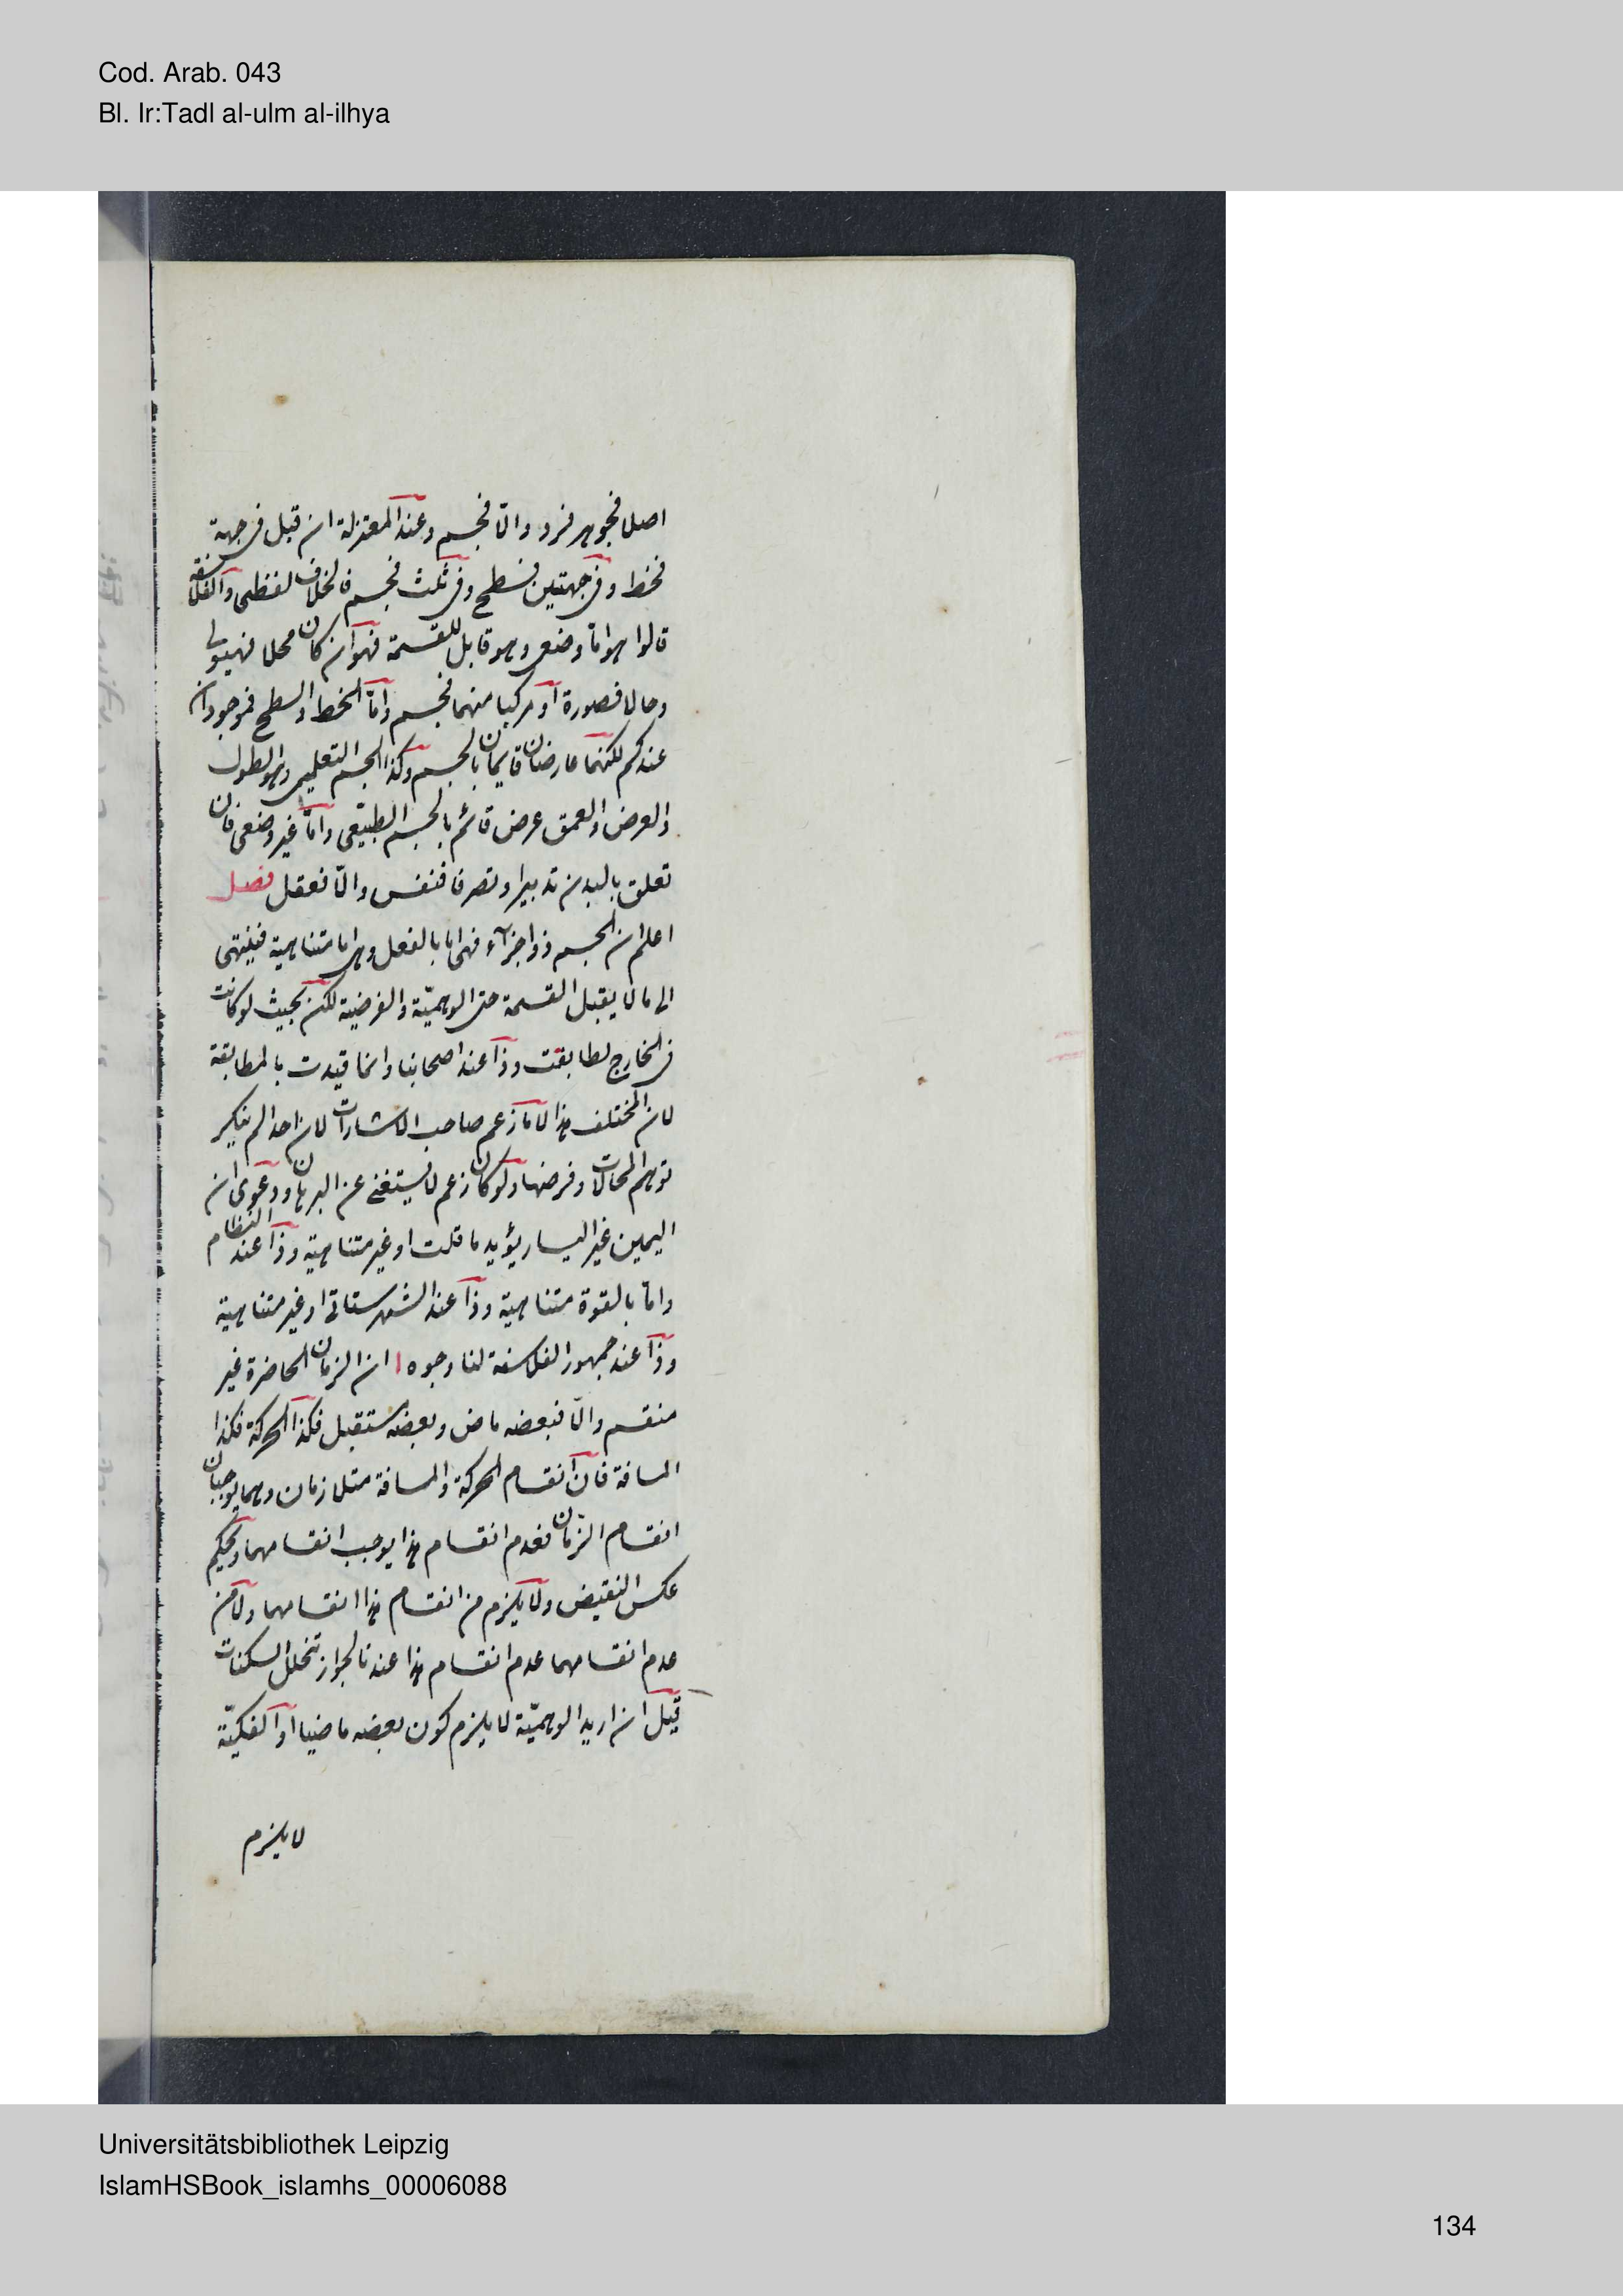 Cod. Arab. 043
Bl. Ir:Tadl al-ulm al-ilhya
اصلا فجوهر فرد والّا فجسم وعند المعتزلة ان قبل فى جهة
فخط وفى جهتين فسطح وفى ثلث فجسم فالخلاف لفظى والفلاسفة
قالوا هو امّا وضعى وهو قابل للقسمة فهو ان كان محلا فهيولى
وحالا فصورة او مركبا منهما فجسم وامّا الخط والسطح فموجودان
عندكم لكنهما عارضان قايمان بالجسم وكذا الجسم التعليمى وهو الطول
والعرض والعمق عرض قائم بالجسم الطبيعى وامّا غير وضعى فان
تعلق بالبدن تدبيرا وتصرفا فنفس والّا فعقل فصل
اعلم ان الجسم ذو اجزآء فهى امّا بالفعل وهى اما متناهية فينتهى
الى ما لا يقبل القسمة حتى الوهميّة والفرضية لكن بحيث لو كانت
فى الخارج لطابقت وذا عند اصحابنا وانما قيدت بالمطابقة
لان المختلف هذا لا ما زعم صاحب الاشارات لان احدا لم ينكر
توهم المحالات وفرضها ولو كان زعم لا يستغنى عن البرهان ودعوى ان
اليمين غير اليسار يؤيد ما قلت او غير متناهية وذا عند النظام
وامّا بالقوة متناهية وذا عند الشهرستانى او غير متناهية
وذا عند جمهور الفلاسفة لنا وجوه ا ان الزمان الحاضرة غير
منقسم والّا فبعضه ماض وبعضه مستقبل فكذا الحركة فكذا
المسافة فان انقسام الحركة والمسافة متلازمان وهما يوجبان
انقسام الزمان فعدم انقسام هذا يوجب انقسامهما وبحكم
عكس النقيض ولا يلزم من انقسام هذا انقسامهما ولا من
عدم انقسامهما عدم انقسام هذا عندنا لجواز تخلل السكنات
قيل ان اريد الوهميّة لا يلزم كون بعضه ماضيا او الفكيّة
لا يلزم
Universitätsbibliothek Leipzig
IslamHSBook_islamhs_00006088
134